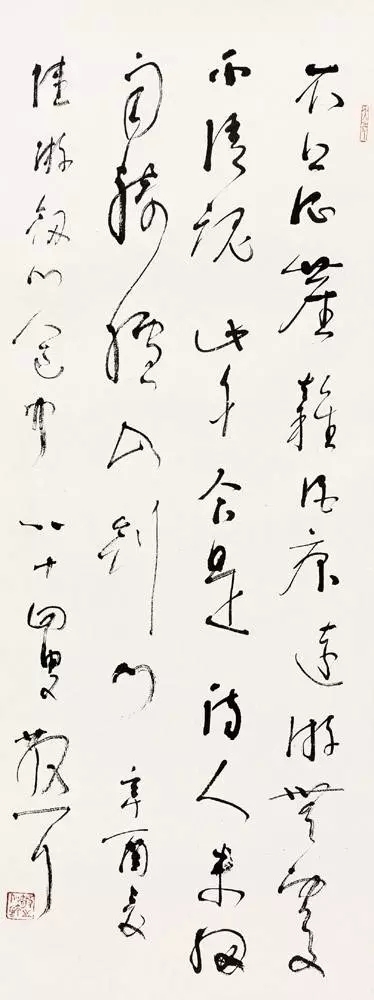 衣上征塵雜酒痕遠游無處
不消魂此身合是詩人未細
雨騎驢入劍門 辛酉夏
陸游劍門道中 八十四叟散耳